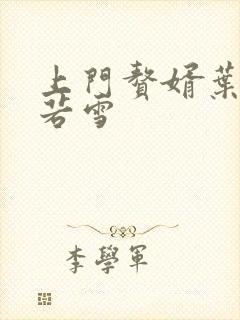 上門贅婿葉
若雪
李學軍